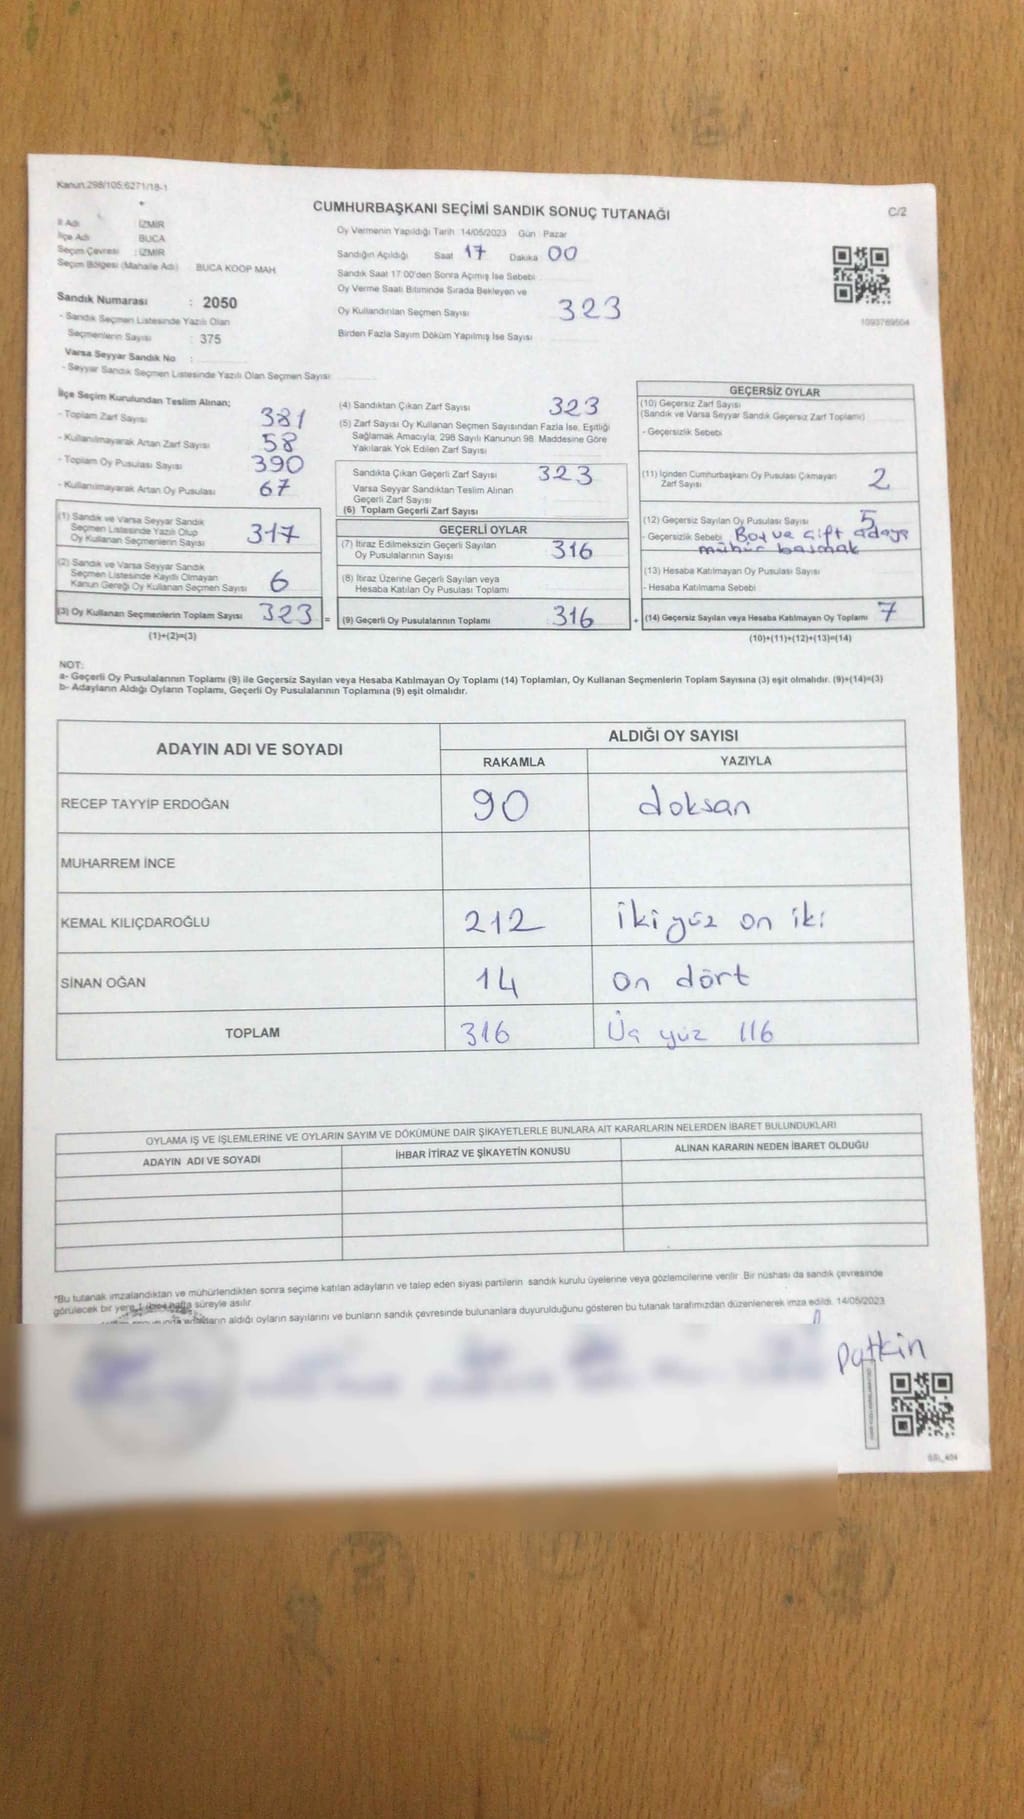 Kanun:298/105;6271/18-1
C/2
CUMHURBAŞKANI SEÇİMİ SANDIK SONUÇ TUTANAĞI
İl Adı İZMİR
İlçe Adı BUCA
Seçim Çevresi : İZMİR
Seçim Bölgesi (Mahalle Adı) BUCA KOOP MAH.
Sandık Numarası : 2050
- Sandık Seçmen Listesinde Yazılı Olan
Seçmenlerin Sayısı : 375
Varsa Seyyar Sandık No :
- Seyyar Sandık Seçmen Listesinde Yazılı Olan Seçmen Sayısı
Oy Vermenin Yapıldığı Tarih :14/05/2023 Gün : Pazar
Sandığın Açıldığı Saat 17 Dakika 00
Sandık Saat 17:00'den Sonra Açımış İse Sebebi
Oy Verme Saati Bitiminde Sırada Bekleyen ve
Oy Kullandırılan Seçmen Sayısı 323
Birden Fazla Sayım Döküm Yapılmış İse Sayısı
1093769504
İlçe Seçim Kurulundan Teslim Alınan;
- Toplam Zarf Sayısı 381
- Kullanılmayarak Artan Zarf Sayısı 58
- Toplam Oy Pusulası Sayısı 390
- Kullanılmayarak Artan Oy Pusulası 67
(1) Sandık ve Varsa Seyyar Sandık
Seçmen Listesinde Yazılı Olup
Oy Kullanan Seçmenlerin Sayısı 317
(2) Sandık ve Varsa Seyyar Sandık
Seçmen Listesinde Kayıtlı Olmayan
Kanun Gereği Oy Kullanan Seçmen Sayısı 6
(3) Oy Kullanan Seçmenlerin Toplam Sayısı 323 =
(1)+(2)=(3)
(4) Sandıktan Çıkan Zarf Sayısı 323
(5) Zarf Sayısı Oy Kullanan Seçmen Sayısından Fazla İse, Eşitliği
Sağlamak Amacıyla, 298 Sayılı Kanunun 98. Maddesine Göre
Yakılarak Yok Edilen Zarf Sayısı
Sandıkta Çıkan Geçerli Zarf Sayısı 323
Varsa Seyyar Sandıktan Teslim Alınan
Geçerli Zarf Sayısı
(6) Toplam Geçerli Zarf Sayısı
GEÇERLİ OYLAR
(7) İtiraz Edilmeksizin Geçerli Sayılan
Oy Pusulalarının Sayısı 316
(8) İtiraz Üzerine Geçerli Sayılan veya
Hesaba Katılan Oy Pusulası Toplamı
(9) Geçerli Oy Pusulalarının Toplamı 316 +
GEÇERSİZ OYLAR
(10) Geçersiz Zarf Sayısı
(Sandık ve Varsa Seyyar Sandık Geçersiz Zarf Toplamı)
- Geçersizlik Sebebi
(11) İçinden Cumhurbaşkanı Oy Pusulası Çıkmayan
Zarf Sayısı 2
(12) Geçersiz Sayılan Oy Pusulası Sayısı 5
- Geçersizlik Sebebi Boş ve çift adaya
mühür basmak
(13) Hesaba Katılmayan Oy Pusulası Sayısı
- Hesaba Katılmama Sebebi
(14) Geçersiz Sayılan veya Hesaba Katılmayan Oy Toplamı 7
(10)+(11)+(12)+(13)=(14)
NOT:
a- Geçerli Oy Pusulalarının Toplamı (9) ile Geçersiz Sayılan veya Hesaba Katılmayan Oy Toplamı (14) Toplamları, Oy Kullanan Seçmenlerin Toplam Sayısına (3) eşit olmalıdır. (9)+(14)=(3)
b- Adayların Aldığı Oyların Toplamı, Geçerli Oy Pusulalarının Toplamına (9) eşit olmalıdır.
ADAYIN ADI VE SOYADI ALDIĞI OY SAYISI
RAKAMLA YAZIYLA
RECEP TAYYİP ERDOĞAN 90 doksan
MUHARREM İNCE
KEMAL KILIÇDAROĞLU 212 iki yüz on iki
SİNAN OĞAN 14 on dört
TOPLAM 316 Üç yüz 116
OYLAMA İŞ VE İŞLEMLERİNE VE OYLARIN SAYIM VE DÖKÜMÜNE DAİR ŞİKAYETLERLE BUNLARA AİT KARARLARIN NELERDEN İBARET BULUNDUKLARI
ADAYIN ADI VE SOYADI İHBAR İTİRAZ VE ŞİKAYETİN KONUSU ALINAN KARARIN NEDEN İBARET OLDUĞU
*Bu tutanak imzalandıktan ve mühürlendikten sonra seçime katılan adayların ve talep eden siyasi partilerin sandık kurulu üyelerine veya gözlemcilerine verilir. Bir nüshası da sandık çevresinde
görülecek bir yere 1 (bir) hafta süreyle asılır.
adayların aldığı oyların sayılarını ve bunların sandık çevresinde bulunanlara duyurulduğunu gösteren bu tutanak tarafımızdan düzenlenerek imza edildi. 14/05/2023